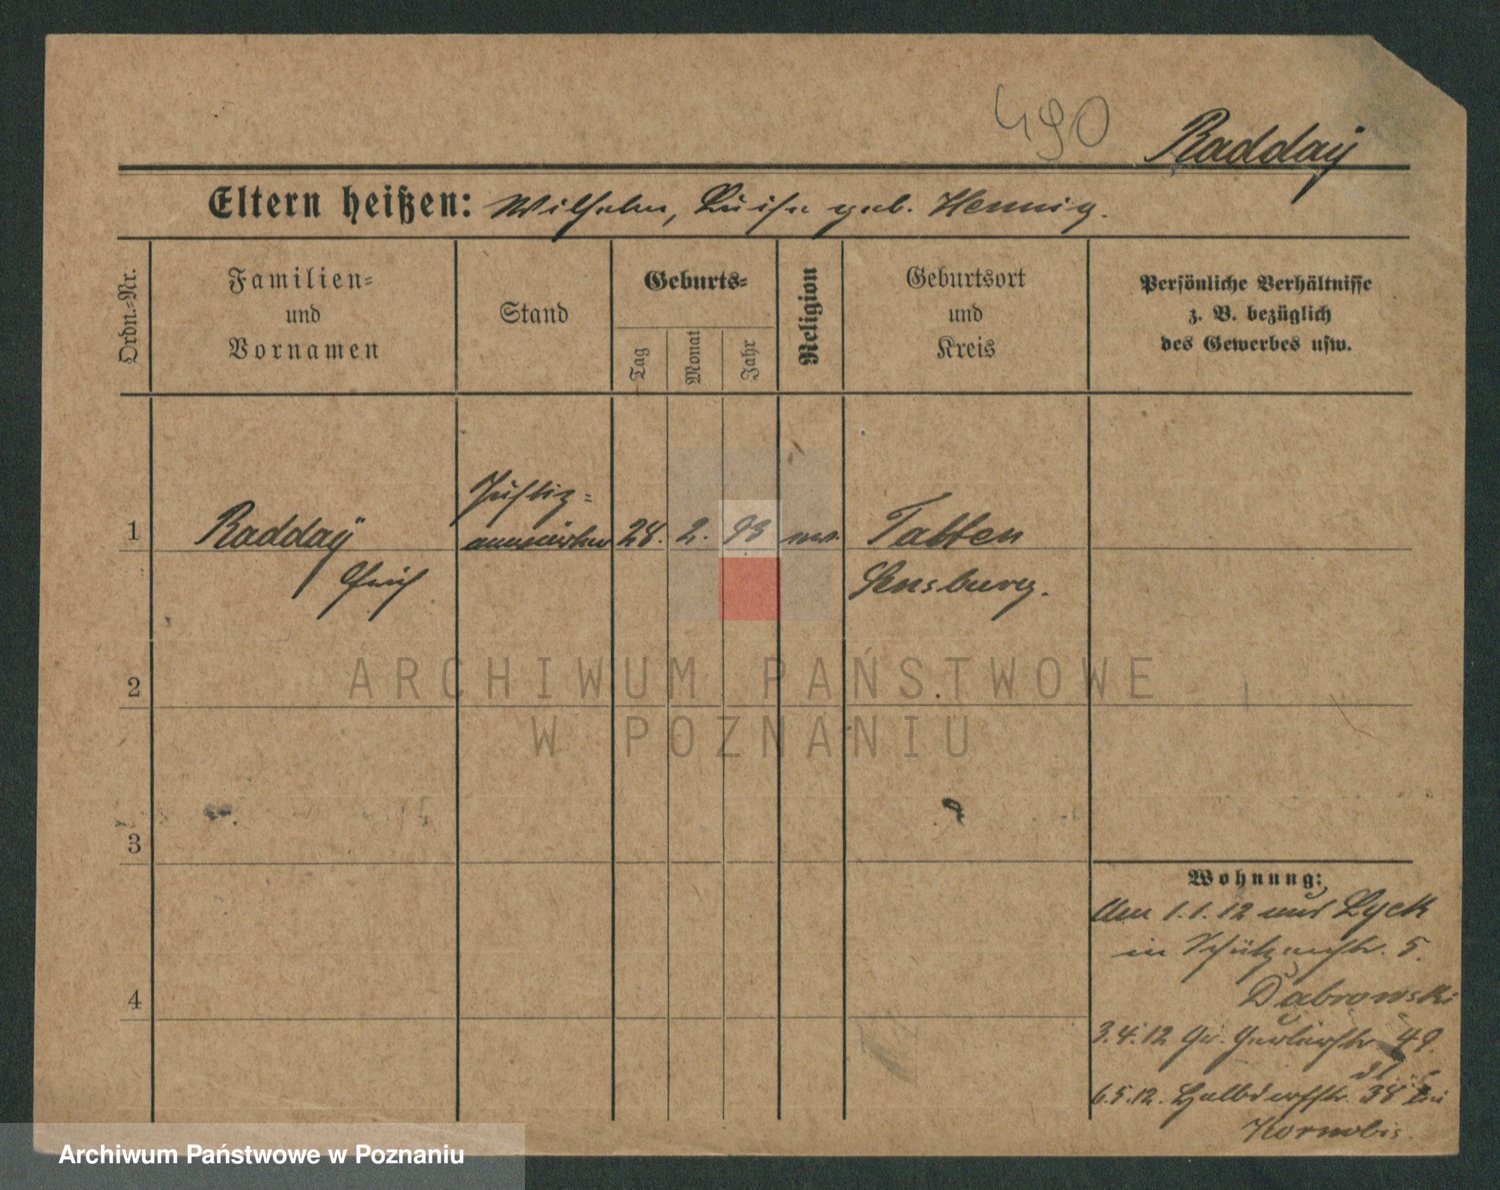 490
Radday
Eltern heißen: Wilhelm, Luise geb. Hennig.
Ordn.-Nr.
Familien-
und
Vornamen
Stand
Geburts-
Tag
Monat
Jahr
Religion
Geburtsort
und
Kreis
Persönliche Verhältnisse
z. B. bezüglich
des Gewerbes usw.
1
Radday
Erich
Justiz-
anwärter
28.
2.
93
Tatten
Sensburg.
2
3
4
Wohnung:
Am 1.1.12 aus Lyck
in Schützenstr. 5.
Dabrowski
3.4.12 Gr. Gerberstr. 49.
6.5.12. Halbdorfstr. 38 bei
Kornobis.
ARCHIWUM PAŃSTWOWE
W POZNANIU
Archiwum Państwowe w Poznaniu